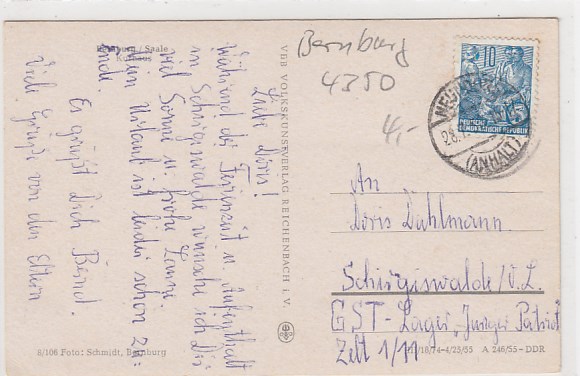 Bernburg / Saale
Kurhaus
Liebe Doris!
Während der Ferienzeit u. Aufenthalt
in Schirgiswalde wünsche ich Dir
viel Sonne u. frohe
Mein Urlaub ist leider schon zu
Ende.
Es grüßt Dich Bernd.
Viele Grüße von den Eltern
VEB VOLKSKUNSTVERLAG REICHENBACH I. V.
8/106 Foto: Schmidt, Bernburg
Bernburg
4350
4,-
10
DEUTSCHE
DEMOKRATISCHE REPUBLIK
(ANHALT)
An
Doris Dahlmann
Schirgiswalde/O.L.
GST-Lager "Junger Patriot"
Zelt 1/11
III/18/74-4/25/55 A 246/55 - DDR